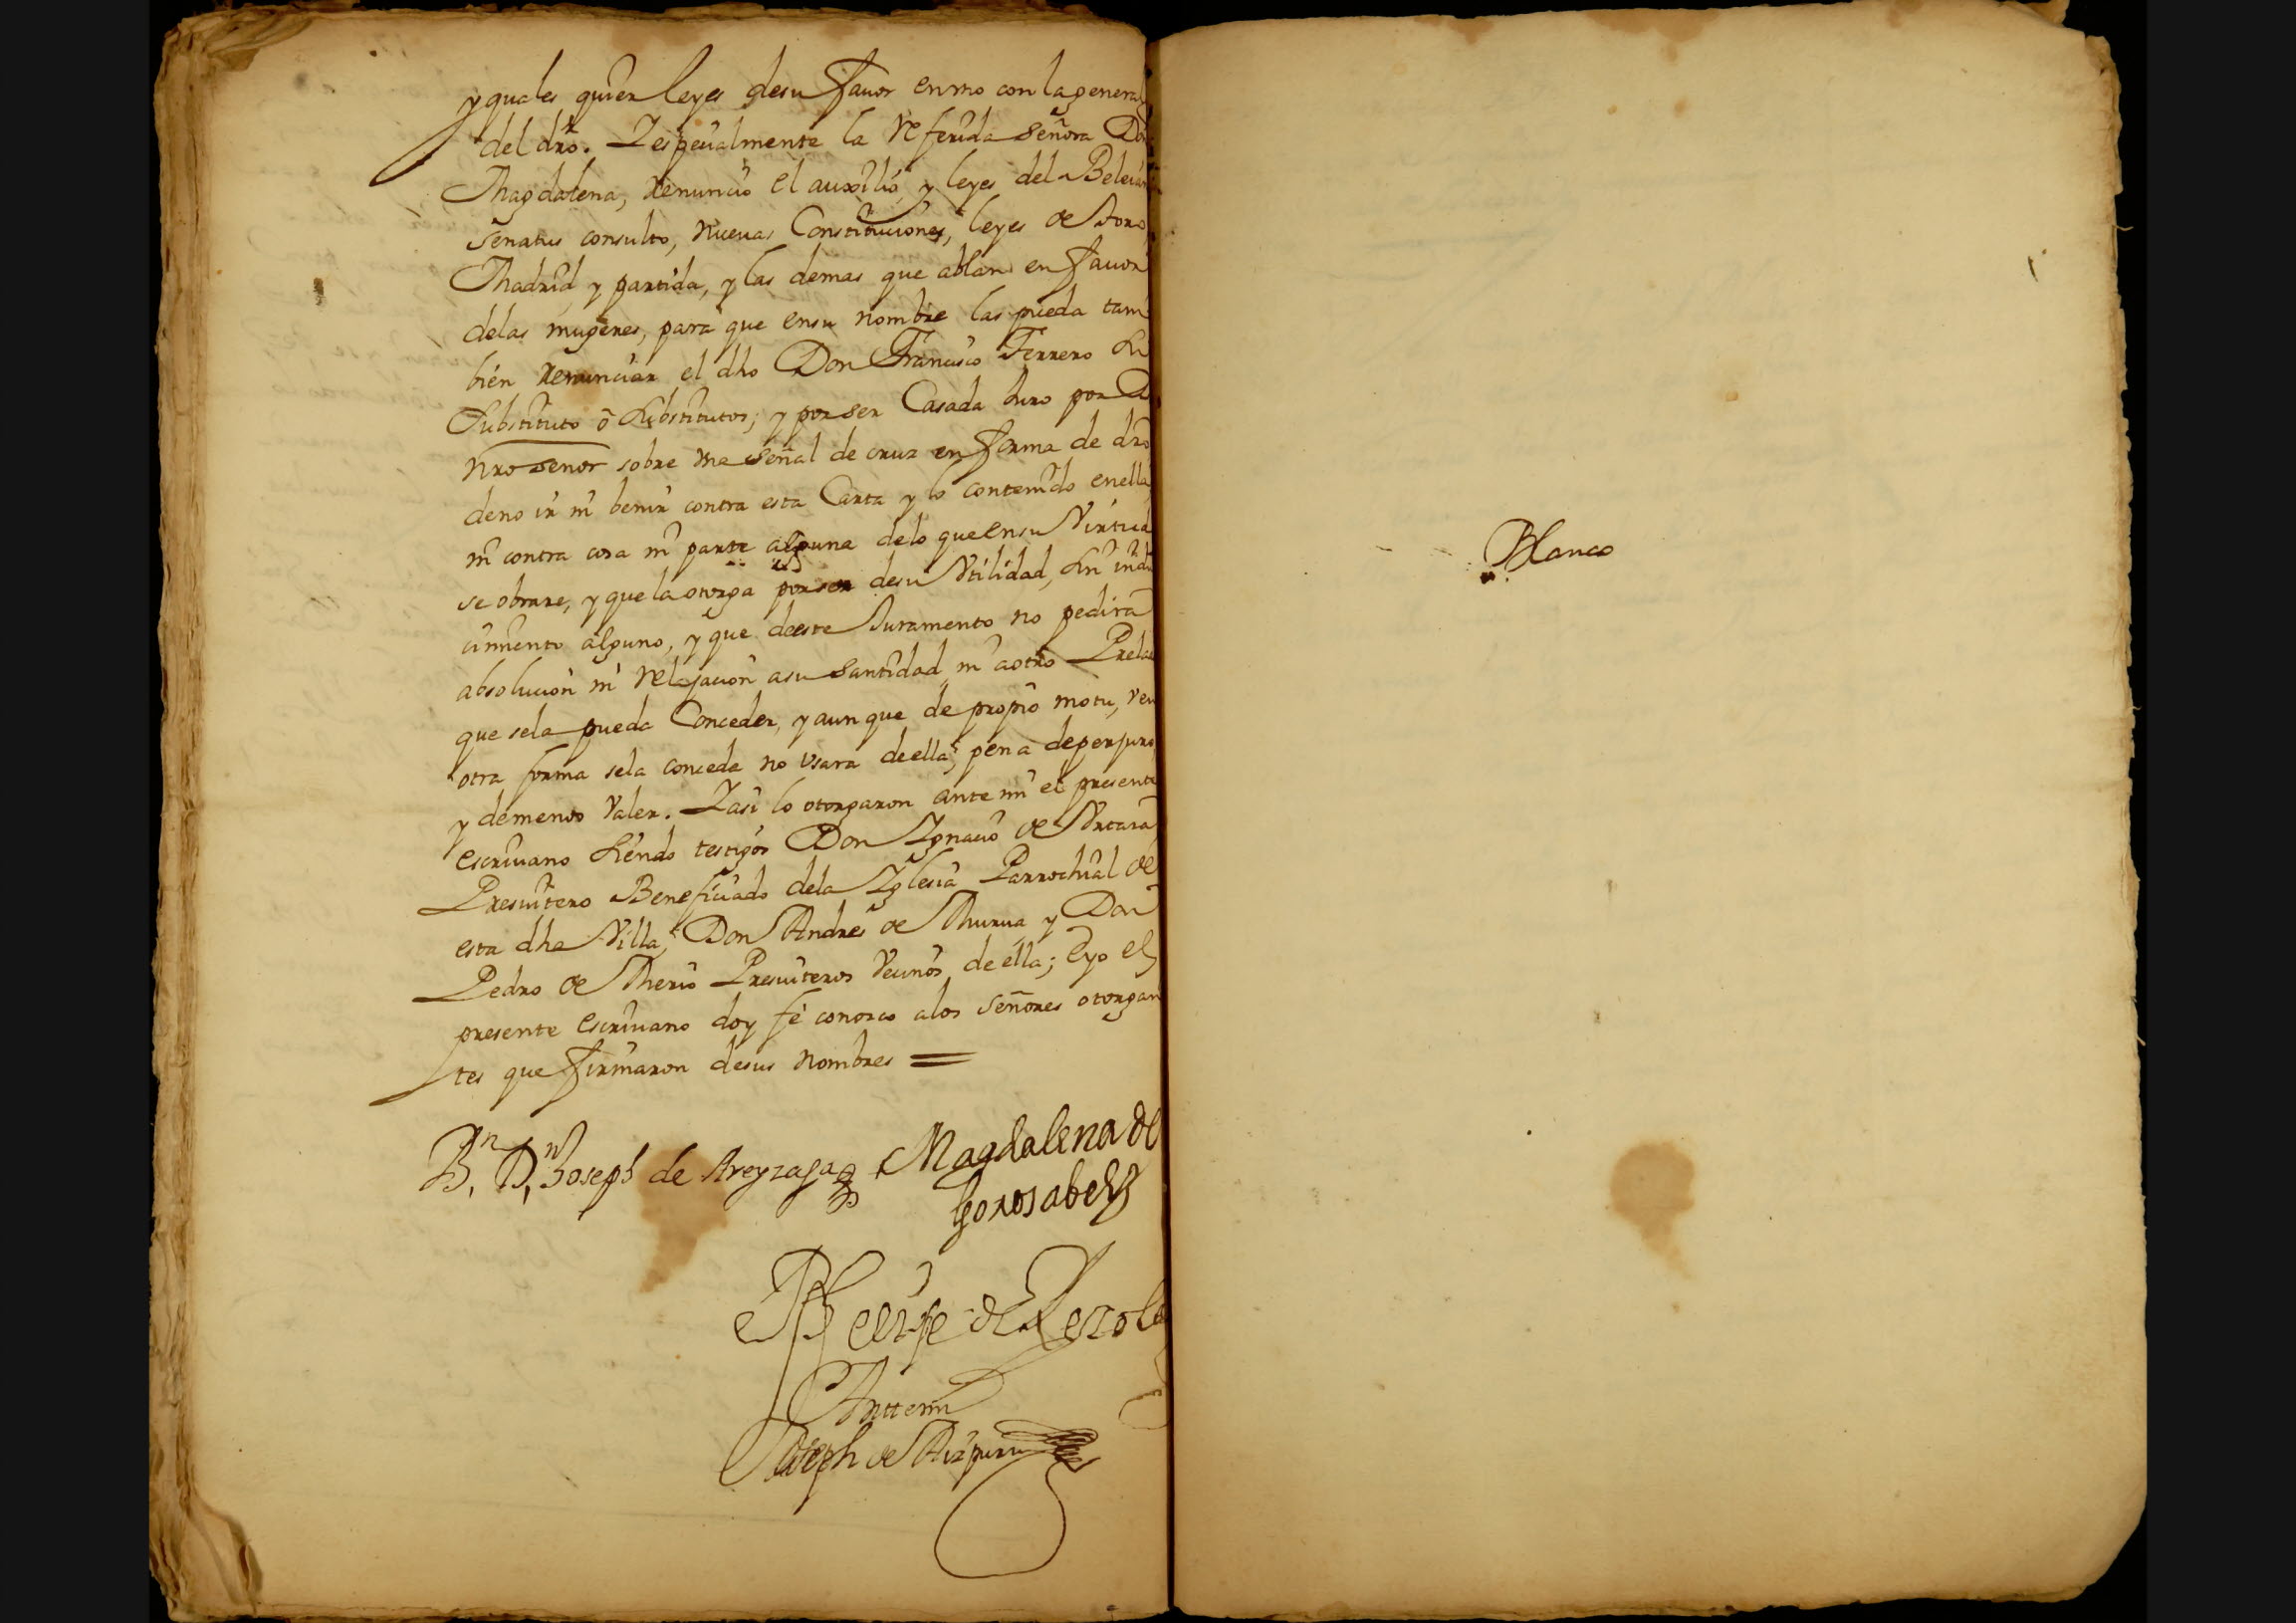 y quales quier leyes de su favor en uno con la general
del dro. Y espeçialmente la referida señora Do
Magdalena, renunçio el auxilio, y leyes del Beleia
senatus consulto, nuevas Constituçiones, leyes de Toro,
Madrid y partida, y las demas que ablan en favor
delas mugeres, para que en su nombre las pueda tam
bien renunçiar el dho Don Françisco Ferrero su
Substituto ô substitutos; y por ser Casada Juro por D
nro señor sobre una señal de cruz en forma de dro
de no ir ni benir contra esta Carta y lo contenido en ella,
ni contra cosa ni parte alguna delo que en su Virtud
se obrare, y que la otorga por ser de su Vtilidad, sin indu
çimiento alguno, y que de este Juramento no pedira
absoluçion ni relajaçion a su Santidad, ni a otro Prelad
que sela pueda Conceder, y aun que de propio motu, v en
otra forma sela conceda no vsara de ella, pena de perjuro,
y de menos Valer. Y asi lo otorgaron ante mi el presente
escrivano siendo testigos Don Ygnaçio de Vrtara
Presuitero Benefiçiado dela Yglesia Parrochial de
esta dha Villa, Don Andres de Murua y Don
Pedro de Merio Presuiteros Veçinos de ella; E yo el
presente escrivano doy fé conosco alos señores otorgan
tes que firmaron de sus nombres =
Bn. Dn. Joseph de Areyzaga Magdalena de
Gorosabel
Phelipe de Lezola
Antte mi
Joseph de Aizpuru
Blanco